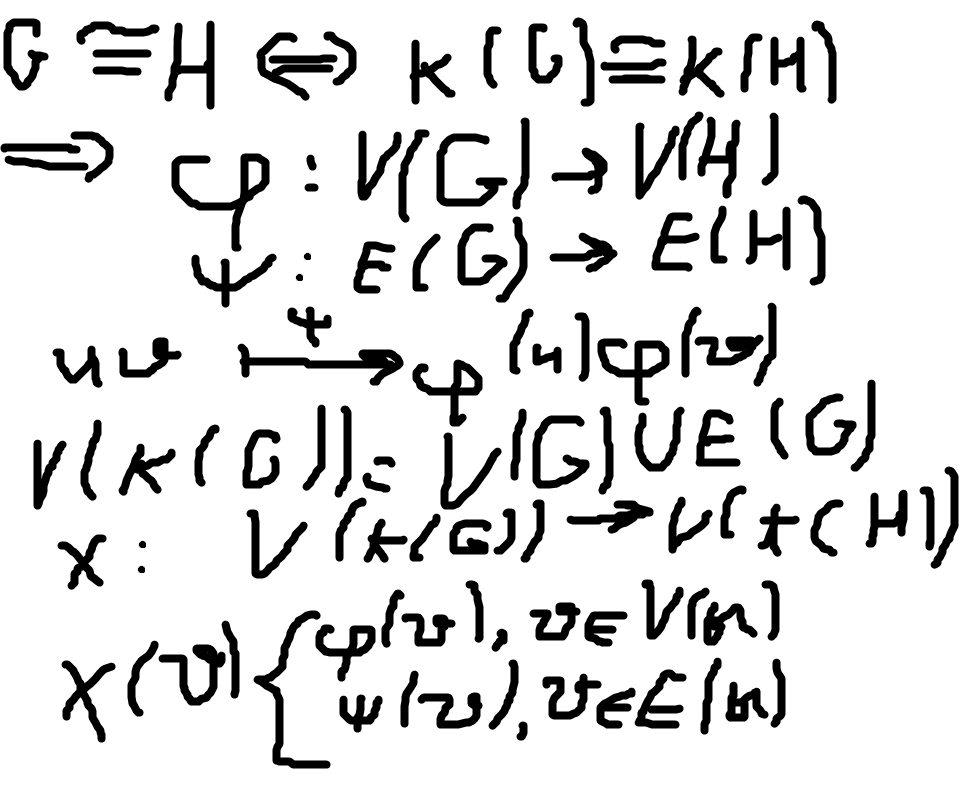 G ≅ H ⇔ K(G) ≅ K(H)
⇒ φ : V(G) → V(H)
ψ : E(G) → E(H)
uv ↦ψ φ(u)φ(v)
V(K(G)) = V(G) ∪ E(G)
χ : V(K(G)) → V(K(H))
χ(v) { φ(v), v ∈ V(G)
ψ(v), v ∈ E(G)